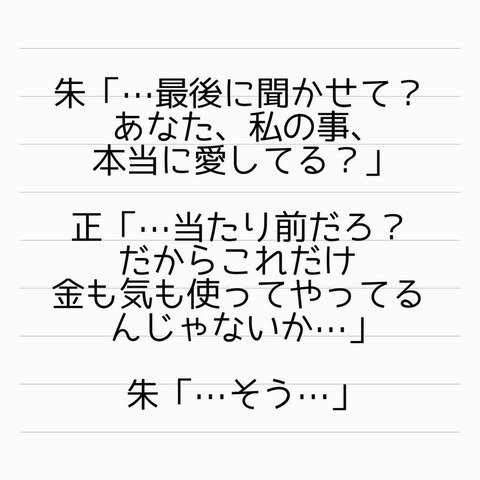 朱「…最後に聞かせて？
あなた、私の事、
本当に愛してる？」
正「…当たり前だろ？
だからこれだけ
金も気も使ってやってる
んじゃないか…」
朱「…そう…」